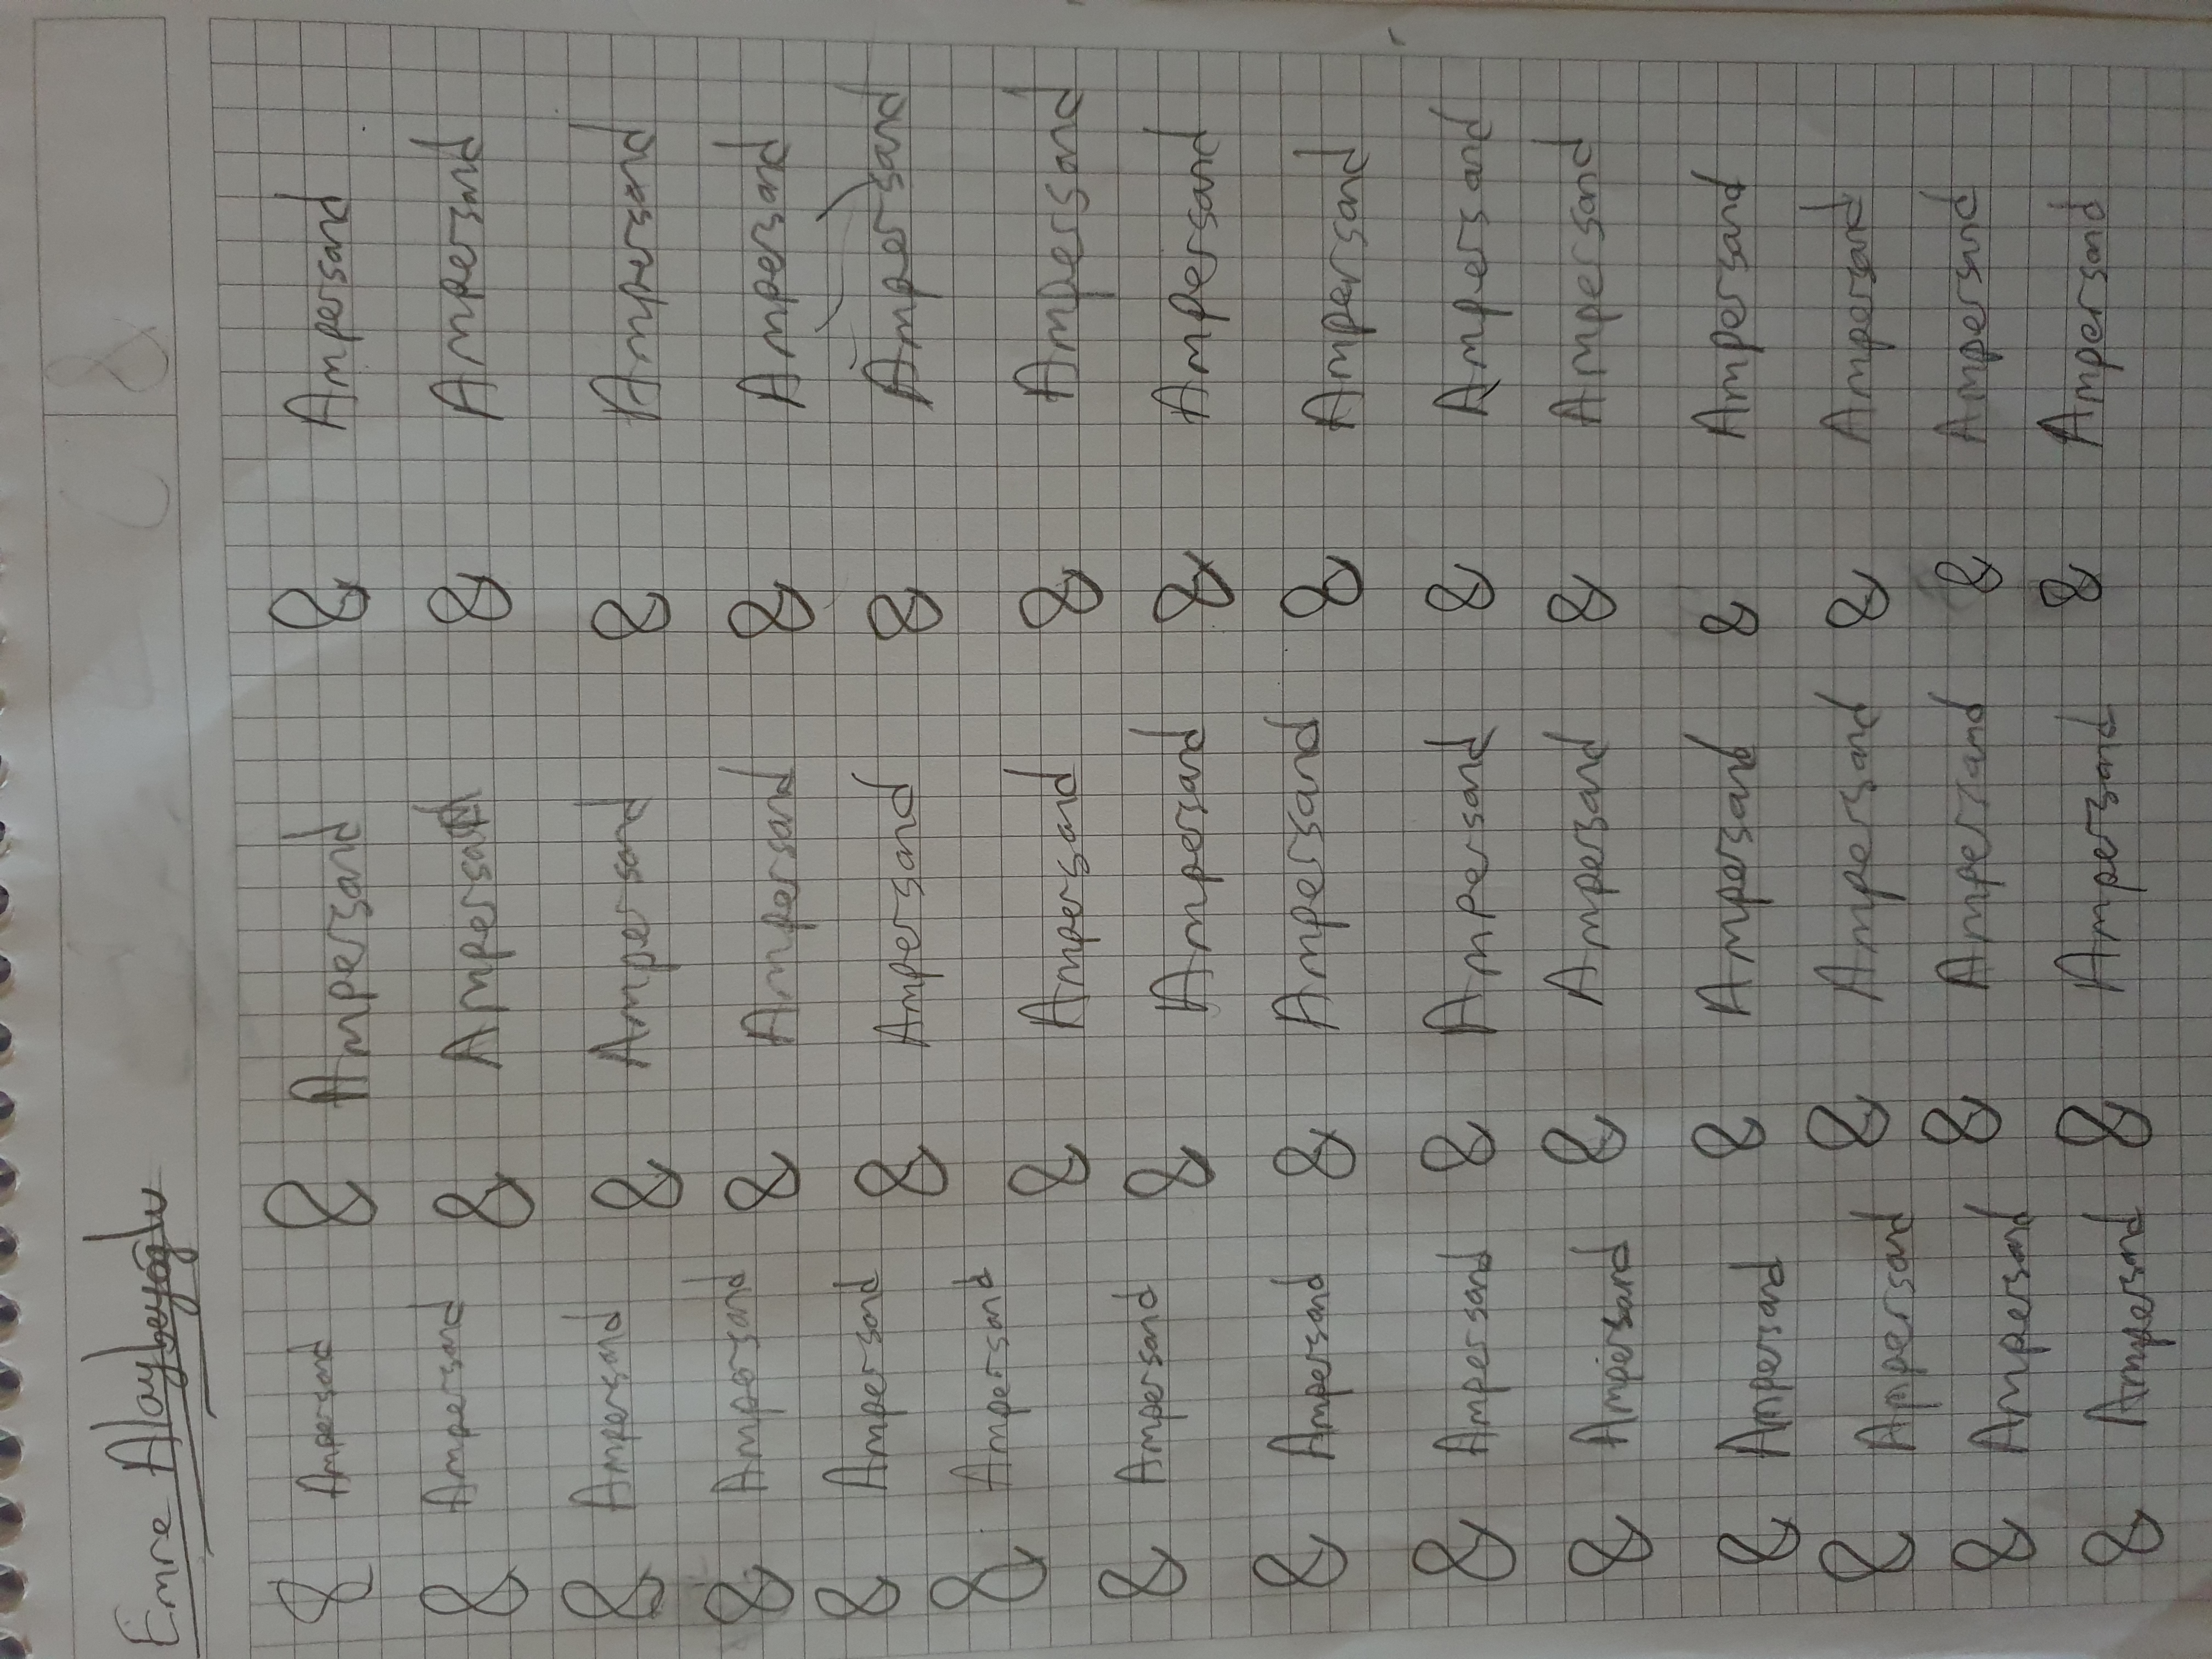 &
Emre Alaybeyoğlu
& Ampersand & Ampersand & Ampersand
& Ampersand & Ampersand & Ampersand
& Ampersand & Ampersand & Ampersand
& Ampersand & Ampersand & Ampersand
& Ampersand & Ampersand & Ampersand
& Ampersand & Ampersand & Ampersand
& Ampersand & Ampersand & Ampersand
& Ampersand & Ampersand & Ampersand
& Ampersand & Ampersand & Ampersand
& Ampersand & Ampersand & Ampersand
& Ampersand & Ampersand & Ampersand
& Ampersand & Ampersand & Ampersand
& Ampersand & Ampersand & Ampersand
& Ampersand & Ampersand & Ampersand